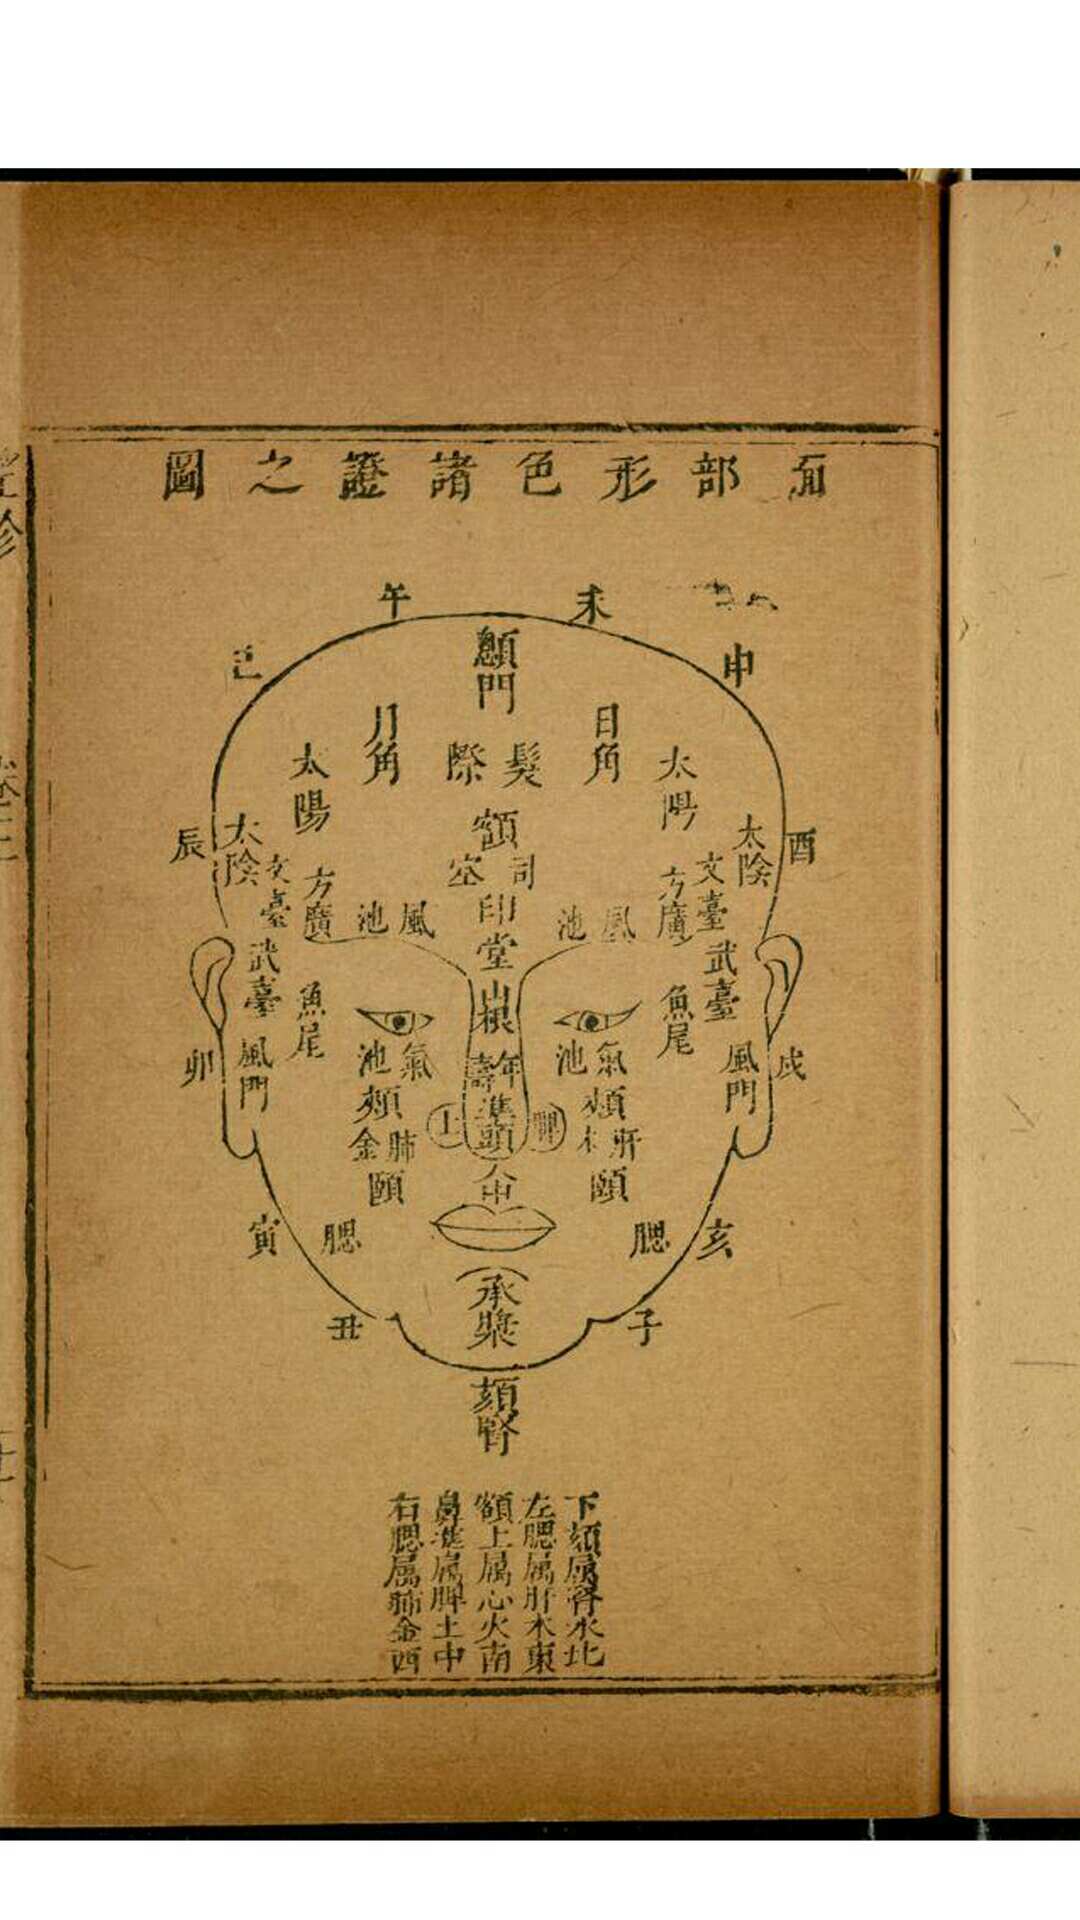 面部形色諸證之圖
午
未
申
巳
酉
辰
戌
卯
亥
寅
子
丑
顖門
日角
月角
髮際
太陽
太陽
額
太陰
太陰
司空
文臺
文臺
方廣
方廣
風池
風池
印堂
武臺
武臺
魚尾
魚尾
山根
氣池
氣池
年壽
風門
風門
頰
頰
準頭
脾
土
肝木
肺金
人中
頤
頤
腮
腮
承漿
頦腎
下頦属腎水北
左腮属肝木東
額上属心火南
鼻準属脾土中
右腮属肺金西